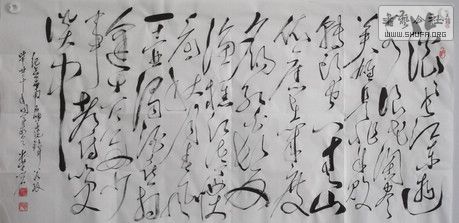 滚滚长江东逝
水浪花淘尽
英雄是非成败
转头空青山
依旧在几度
夕阳红白发
渔樵江渚上
惯看秋月春风
一壶浊酒喜相
逢古今多少
事都付笑
谈中
WWW.SHUFA.ORG